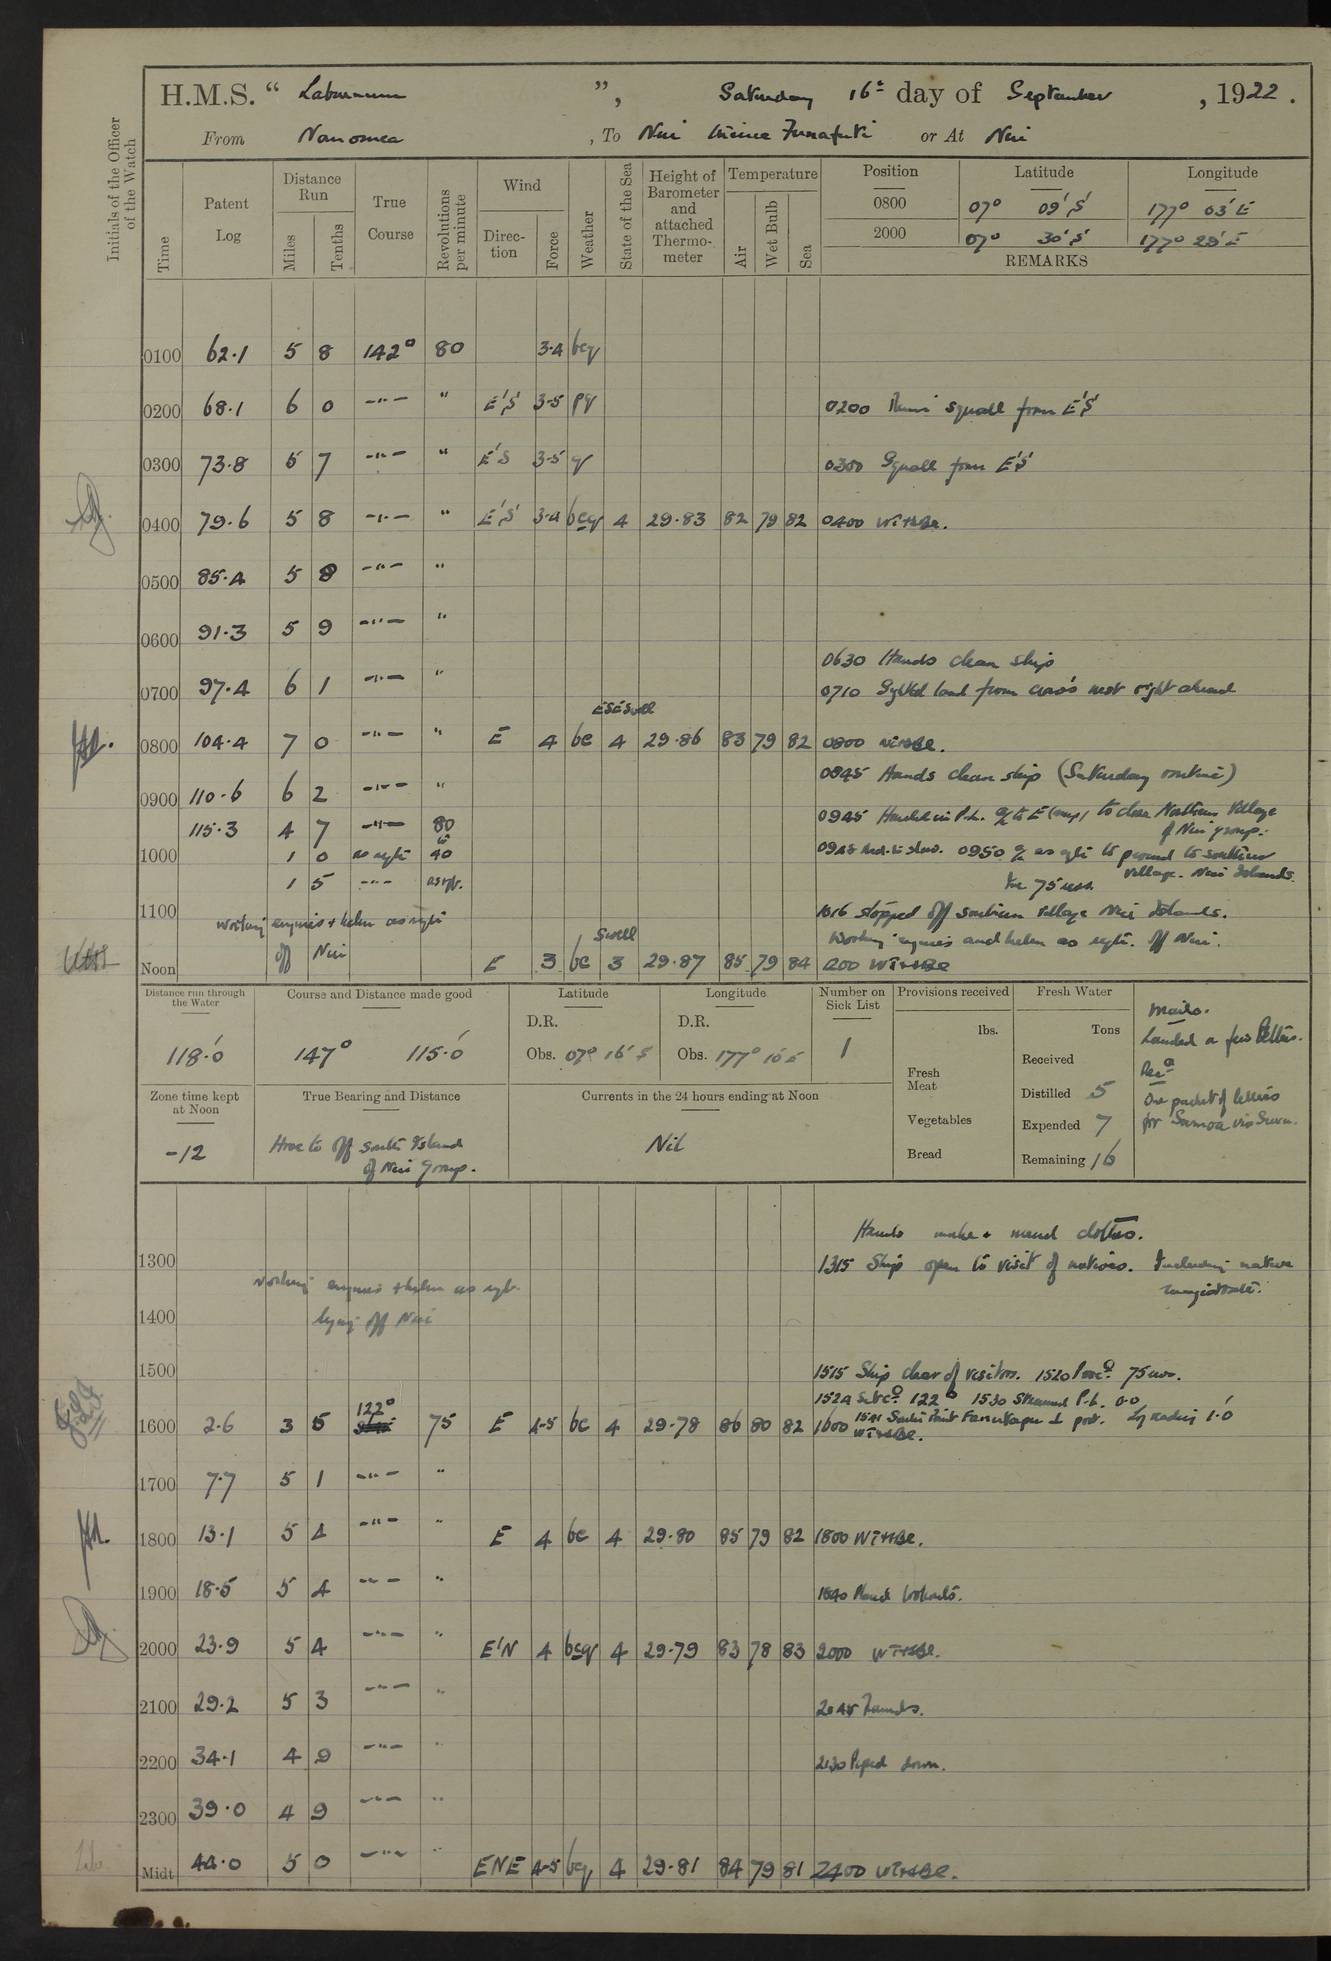 H.M.S. “ Laburnum ”, Saturday 16th day of September , 1922.
From Nanomea , To Nui thence Funafuti or At Nui
Initials of the Officer of the Watch
Time
Patent Log
Distance Run
Miles
Tenths
True Course
Revolutions per minute
Wind
Direction
Force
Weather
State of the Sea
Height of Barometer and attached Thermometer
Temperature
Air
Wet Bulb
Sea
Position Latitude Longitude
0800 07° 09' S 177° 03' E
2000 07° 30' S 177° 28' E
REMARKS
0100 62.1 5 8 142° 80 3-4 bcq
0200 68.1 6 0 –"– " E'S 3-5 pq 0200 squall from E'S
0300 73.8 5 7 –"– " E'S 3-5 q 0300 Squall from E'S
0400 79.6 5 8 –"– " E'S 3-4 bcq 4 29.83 82 79 82 0400 WTHBE.
0500 85.4 5 8 –"– "
0600 91.3 5 9 –"– "
0630 Hands clean ship
0700 97.4 6 1 –"– " 0710 Sighted land from crow's nest right ahead
ESE Swell
0800 104.4 7 0 –"– " E 4 bc 4 29.86 83 79 82 0800 WTHBE.
0845 Hands clean ship (Saturday routine)
0900 110.6 6 2 –"– "
115.3 4 7 –"– 80 0945 Hauled in P.L. a/c to E (mag) to close Northern Village
of Nui group.
to
1000 1 0 as reqte 40 0948 Red. to slow. 0950 a/c as qte to proceed to southern
village. Nui Islands.
1 5 –"– as rqt. 75 revs.
1100 1016 stopped off southern village Nui Islands.
working engines + helm as reqte
Working engines and helm as reqte. off Nui.
Swell
Noon off Nui E 3 bc 3 29.87 85 79 84 1200 WTHBE
Distance run through the Water
118.0
Course and Distance made good
147° 115.0
Latitude
D.R.
Obs. 07° 16' S
Longitude
D.R.
Obs. 177° 10' E
Number on Sick List
1
Provisions received
lbs.
Fresh Meat
Vegetables
Bread
Fresh Water
Tons
Received
Distilled 5
Expended 7
Remaining 16
Mails.
Landed a few letters.
Recd
One packet of letters
for Samoa via Suva.
Zone time kept at Noon
-12
True Bearing and Distance
Hove to off South Island
of Nui Group.
Currents in the 24 hours ending at Noon
Nil
Hands make & mend clothes.
1300 1315 Ship open to visit of natives. Including native
magistrate.
working engines + helm as reqt.
1400 lying off Nui
1500 1515 Ship clear of visitors. 1520 Procd. 75 revs.
1524 Set co. 122° 1530 Streamed P.L. 0.0
122°
1600 2.6 3 5 75 E 4-5 bc 4 29.78 86 80 82 1541 South Point Fanutapu ⊥ port. Log reading 1.0
1600 WTHBE.
1700 7.7 5 1 –"– "
1800 13.1 5 4 –"– " E 4 bc 4 29.80 85 79 82 1800 WTHBE.
1900 18.5 5 4 –"– " 1840 Placed lookouts.
2000 23.9 5 4 –"– " E'N 4 bcq 4 29.79 83 78 83 2000 WTHBE.
2100 29.2 5 3 –"– " 2045 Rounds.
2200 34.1 4 9 –"– " 2130 Piped down.
2300 39.0 4 9 –"– "
Midt. 44.0 5 0 –"– " ENE 4-5 bcq 4 29.81 84 79 81 2400 WTHBE.